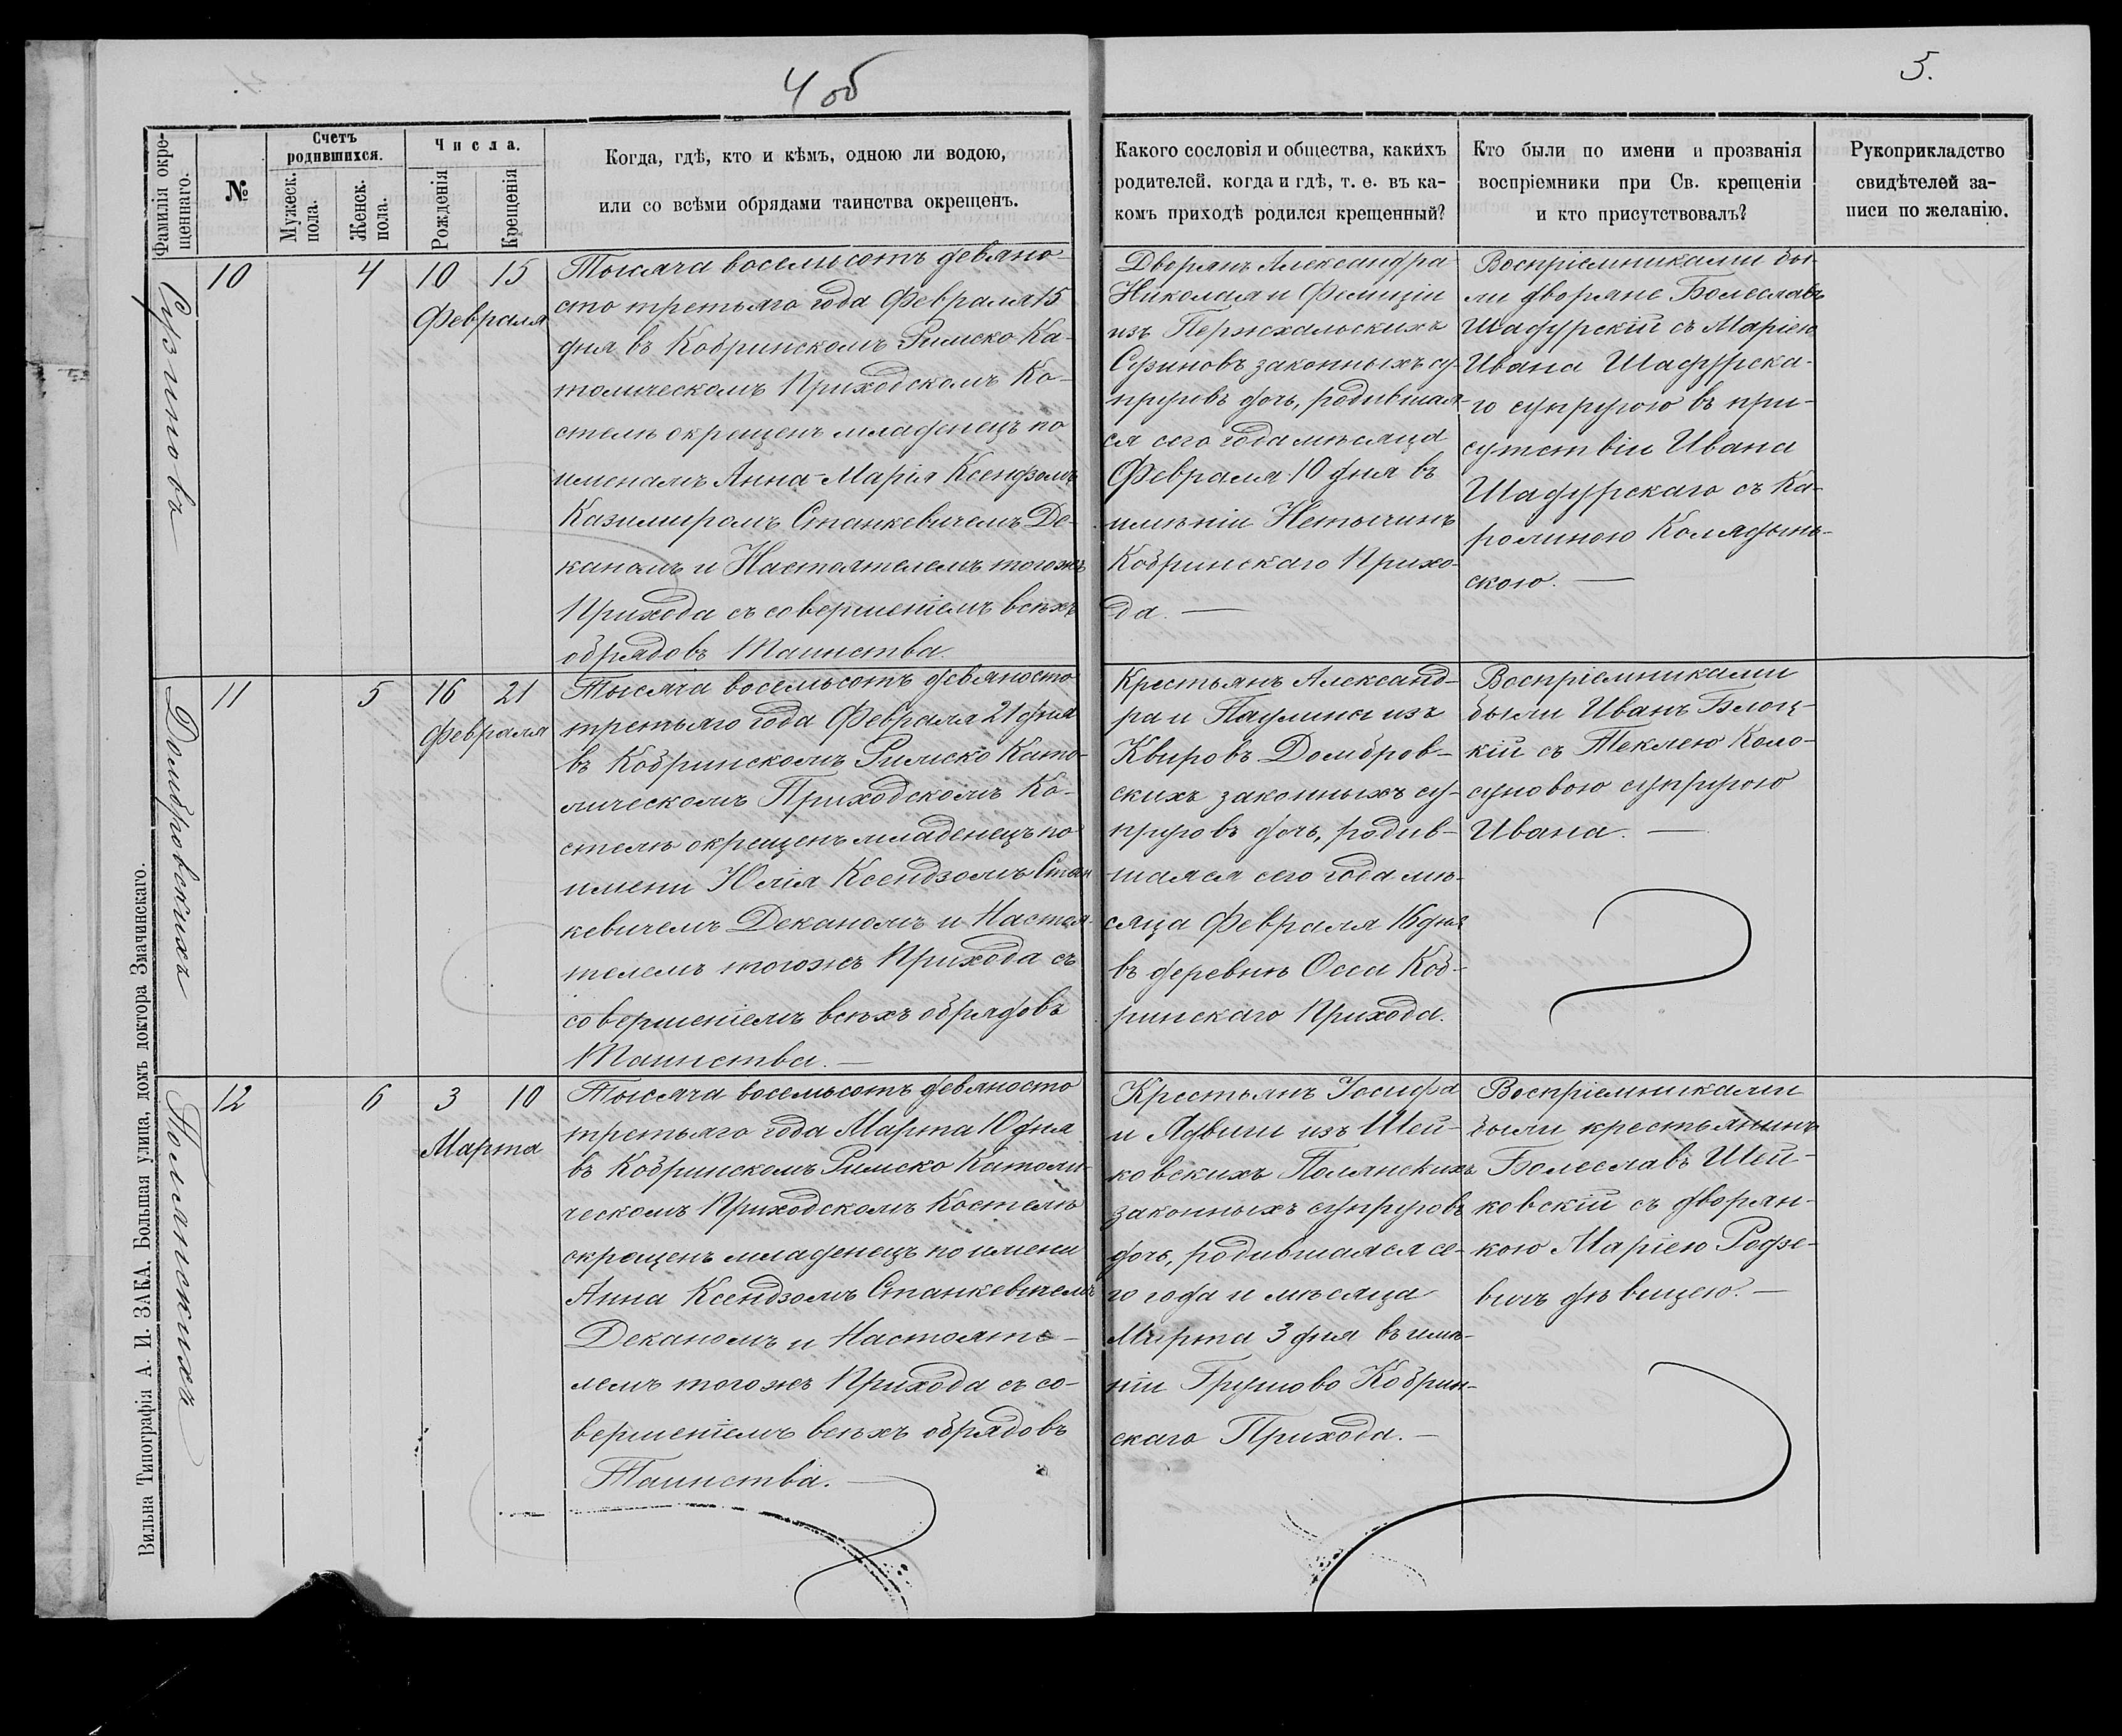 4 об
5.
Фамилія окре-
щеннаго.
№
Счетъ
родившихся.
Мужеск.
пола.
Женск.
пола.
Числа.
Рожденія
Крещенія
Когда, гдѣ, кто и кѣмъ, одною ли водою,
или со всѣми обрядами таинства окрещенъ.
Какого сословія и общества, какихъ
родителей. когда и гдѣ, т. е. въ ка-
комъ приходѣ родился крещенный?
Кто были по имени и прозванія
воспріемники при Св. крещеніи
и кто присутствовалъ?
Рукоприкладство
свидѣтелей за-
писи по желанію.
Сузиновъ
10
4
10 15
Февраля
Тысяча восемьсотъ девяно-
сто третьяго года Февраля 15
дня въ Кобринскомъ Римско Ка-
толическомъ Приходскомъ Ко-
стелѣ окрещенъ младенецъ по
именамъ Анна-Марія Ксендзомъ
Казимиромъ Станкевичемъ Де-
каномъ и Настоятелемъ тогожъ
Прихода съ совершеніемъ всѣхъ
обрядовъ Таинства.
Дворянъ Александра
Николая и Фелиціи
изъ Пержхальскихъ
Сузиновъ законныхъ су-
пруговъ дочь, родившая-
ся сего года мѣсяца
Февраля 10 дня въ
имѣніи Нетычинъ
Кобринскаго Прихо-
да. —
Воспріемниками бы-
ли дворяне Болеславъ
Шадурскій съ Маріею
Ивана Шадурска-
го супругою въ при-
сутствіи Ивана
Шадурскаго съ Ка-
ролиною Колядынь-
скою. —
Домбровскихъ
11
5
16 21
Февраля
Тысяча восемьсотъ девяносто
третьяго года Февраля 21 дня
въ Кобринскомъ Римско Като-
лическомъ Приходскомъ Ко-
стелѣ окрещенъ младенецъ по
имени Юлія Ксендзомъ Стан
кевичемъ Деканомъ и Настоя-
телемъ тогожъ Прихода съ
совершеніемъ всѣхъ обрядовъ
Таинства. —
Крестьянъ Александ-
ра и Паулины изъ
Квировъ Домбров-
скихъ законныхъ су-
пруговъ дочь, родив-
шаяся сего года мѣ-
сяца Февраля 16 дня
въ деревнѣ Осса Коб-
ринскаго Прихода.
Воспріемниками
были Иванъ Блоц-
кій съ Теклею Коло-
суновою супругою
Ивана. —
Полянскихъ
12
6
3 10
Марта
Тысяча восемьсотъ девяносто
третьяго года Марта 10 дня
въ Кобринскомъ Римско Католи-
ческомъ Приходскомъ Костелѣ
окрещенъ младенецъ по имени
Анна Ксендзомъ Станкевичемъ
Деканомъ и Настояте-
лемъ тогожъ Прихода съ со-
вершеніемъ всѣхъ обрядовъ
Таинства.
Крестьянъ Іосифа
и Ядвиги изъ Шей-
ковскихъ Полянскихъ
законныхъ супруговъ
дочь, родившаяся се-
го года и мѣсяца
Марта 3 дня въ имѣ-
ніи Грушово Кобрин-
скаго Прихода. —
Воспріемниками
были крестьянинъ
Болеславъ Шей-
ковскій съ дворян-
кою Маріею Родзе-
вичъ дѣвицею. —
Вильна Типографія А. И. ЗАКА. Большая улица, домъ доктора Змачинскаго.